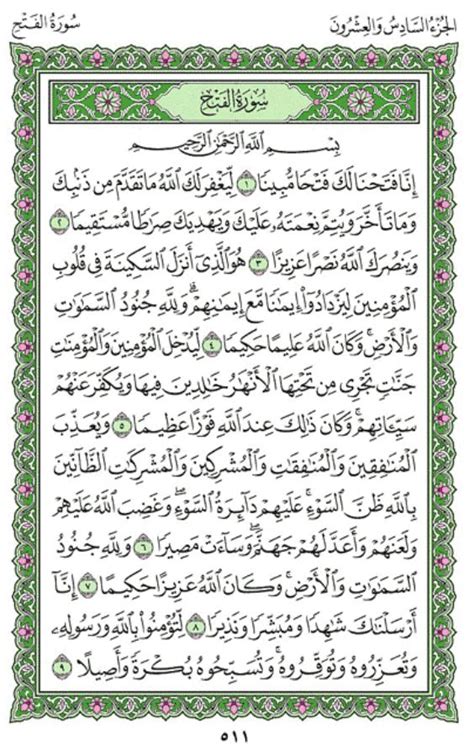 الجزء السادس والعشرون
سورة الفتح
سُورَةُ الفَتْحِ
بِسْمِ اللَّهِ الرَّحْمَٰنِ الرَّحِيمِ
إِنَّا فَتَحْنَا لَكَ فَتْحًا مُّبِينًا ١ لِّيَغْفِرَ لَكَ اللَّهُ مَا تَقَدَّمَ مِن ذَنۢبِكَ
وَمَا تَأَخَّرَ وَيُتِمَّ نِعْمَتَهُۥ عَلَيْكَ وَيَهْدِيَكَ صِرَٰطًا مُّسْتَقِيمًا ٢
وَيَنصُرَكَ اللَّهُ نَصْرًا عَزِيزًا ٣ هُوَ الَّذِىٓ أَنزَلَ السَّكِينَةَ فِى قُلُوبِ
الْمُؤْمِنِينَ لِيَزْدَادُوٓا۟ إِيمَٰنًا مَّعَ إِيمَٰنِهِمْ ۗ وَلِلَّهِ جُنُودُ السَّمَٰوَٰتِ
وَالْأَرْضِ ۚ وَكَانَ اللَّهُ عَلِيمًا حَكِيمًا ٤ لِّيُدْخِلَ الْمُؤْمِنِينَ وَالْمُؤْمِنَٰتِ
جَنَّٰتٍ تَجْرِى مِن تَحْتِهَا الْأَنْهَٰرُ خَٰلِدِينَ فِيهَا وَيُكَفِّرَ عَنْهُمْ
سَيِّـَٔاتِهِمْ ۚ وَكَانَ ذَٰلِكَ عِندَ اللَّهِ فَوْزًا عَظِيمًا ٥ وَيُعَذِّبَ
الْمُنَٰفِقِينَ وَالْمُنَٰفِقَٰتِ وَالْمُشْرِكِينَ وَالْمُشْرِكَٰتِ الظَّآنِّينَ
بِاللَّهِ ظَنَّ السَّوْءِ ۚ عَلَيْهِمْ دَآئِرَةُ السَّوْءِ ۖ وَغَضِبَ اللَّهُ عَلَيْهِمْ
وَلَعَنَهُمْ وَأَعَدَّ لَهُمْ جَهَنَّمَ ۖ وَسَآءَتْ مَصِيرًا ٦ وَلِلَّهِ جُنُودُ
السَّمَٰوَٰتِ وَالْأَرْضِ ۚ وَكَانَ اللَّهُ عَزِيزًا حَكِيمًا ٧ إِنَّآ
أَرْسَلْنَٰكَ شَٰهِدًا وَمُبَشِّرًا وَنَذِيرًا ٨ لِّتُؤْمِنُوا۟ بِاللَّهِ وَرَسُولِهِۦ
وَتُعَزِّرُوهُ وَتُوَقِّرُوهُ ۚ وَتُسَبِّحُوهُ بُكْرَةً وَأَصِيلًا ٩
٥١١